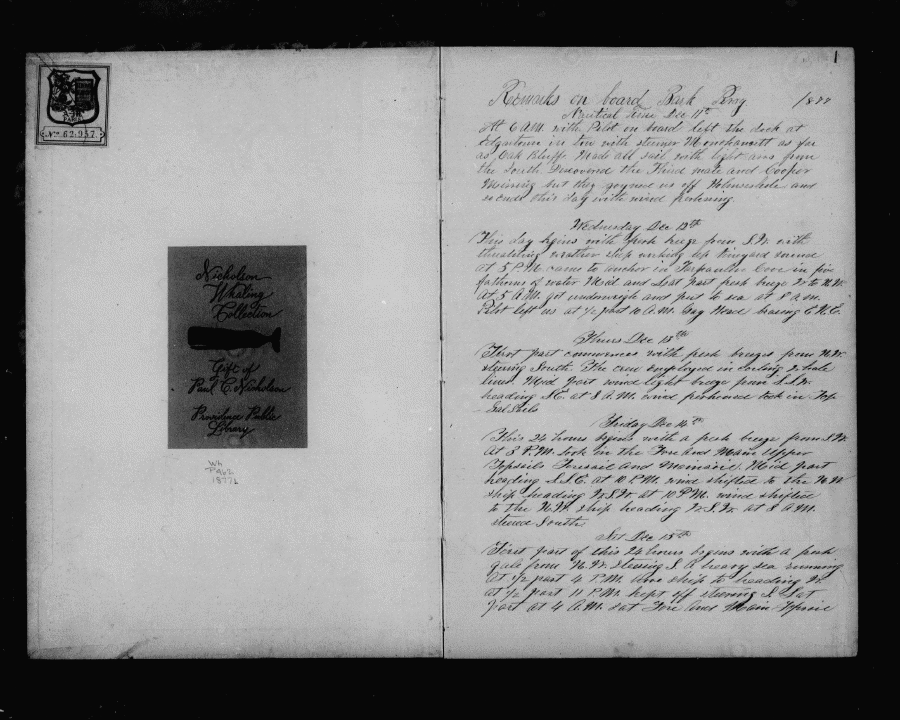 No. 62,957.
Nicholson
Whaling
Collection
Gift of
Paul C. Nicholson
Providence Public
Library
Wh
P462
1877L
1
Remarks on board Bark Perry 1877
Nautical Time Dec 11th
At 6 A.M. with Pilot on board left the dock at
Edgartown in tow with steamer Monohansett as far
as Oak Bluffs. Made all sail with light airs from
the South. Discovered the Third mate and Cooper
Missing but they joyned us off Holmeshole and
so ends this day with wind freshening.
Wednesday Dec 12th
This day begins with fresh breeze from S.W. with
threatning weather ship working up Vineyard sound
at 5 P.M. came to anchor in Tarpaulin Cove in five
fathoms of water Mid and Last part fresh breeze W to N.W.
At 5 A.M. got underweigh and put to sea at 8 a.m.
Pilot left us at 1/2 past 10 A.M. Gay Head bearing E.N.E.
Thurs Dec 13th
First part commences with fresh breezes from N.W.
stering South. The crew employed in coiling whale
line. Mid part wind light breeze from S.S.W.
heading S.E. at 8 A.M. wind freshened took in Top
Gal Sails
Friday Dec 14th
This 24 hours begins with a fresh breeze from S.W.
At 8 P.M. took in the Fore and Main Upper
Topsails Foresail and Mainsail. Mid part
heading S.S.E. at 10 P.M. wind shifted to the N.W.
ship heading W.S.W. at 10 P.M. wind shifted
to the N.W. ship heading W.S.W. at 8 A.M.
steered South.
Sat Dec 15th
First part of this 24 hours begins with a fresh
gale from N.W. steering S. A heavy sea running
At 1/2 past 4 P.M. ship to heading W.
at 1/2 past 11 P.M. kept off steering S. Last
part at 4 A.M. sat Fore and Main Topsail